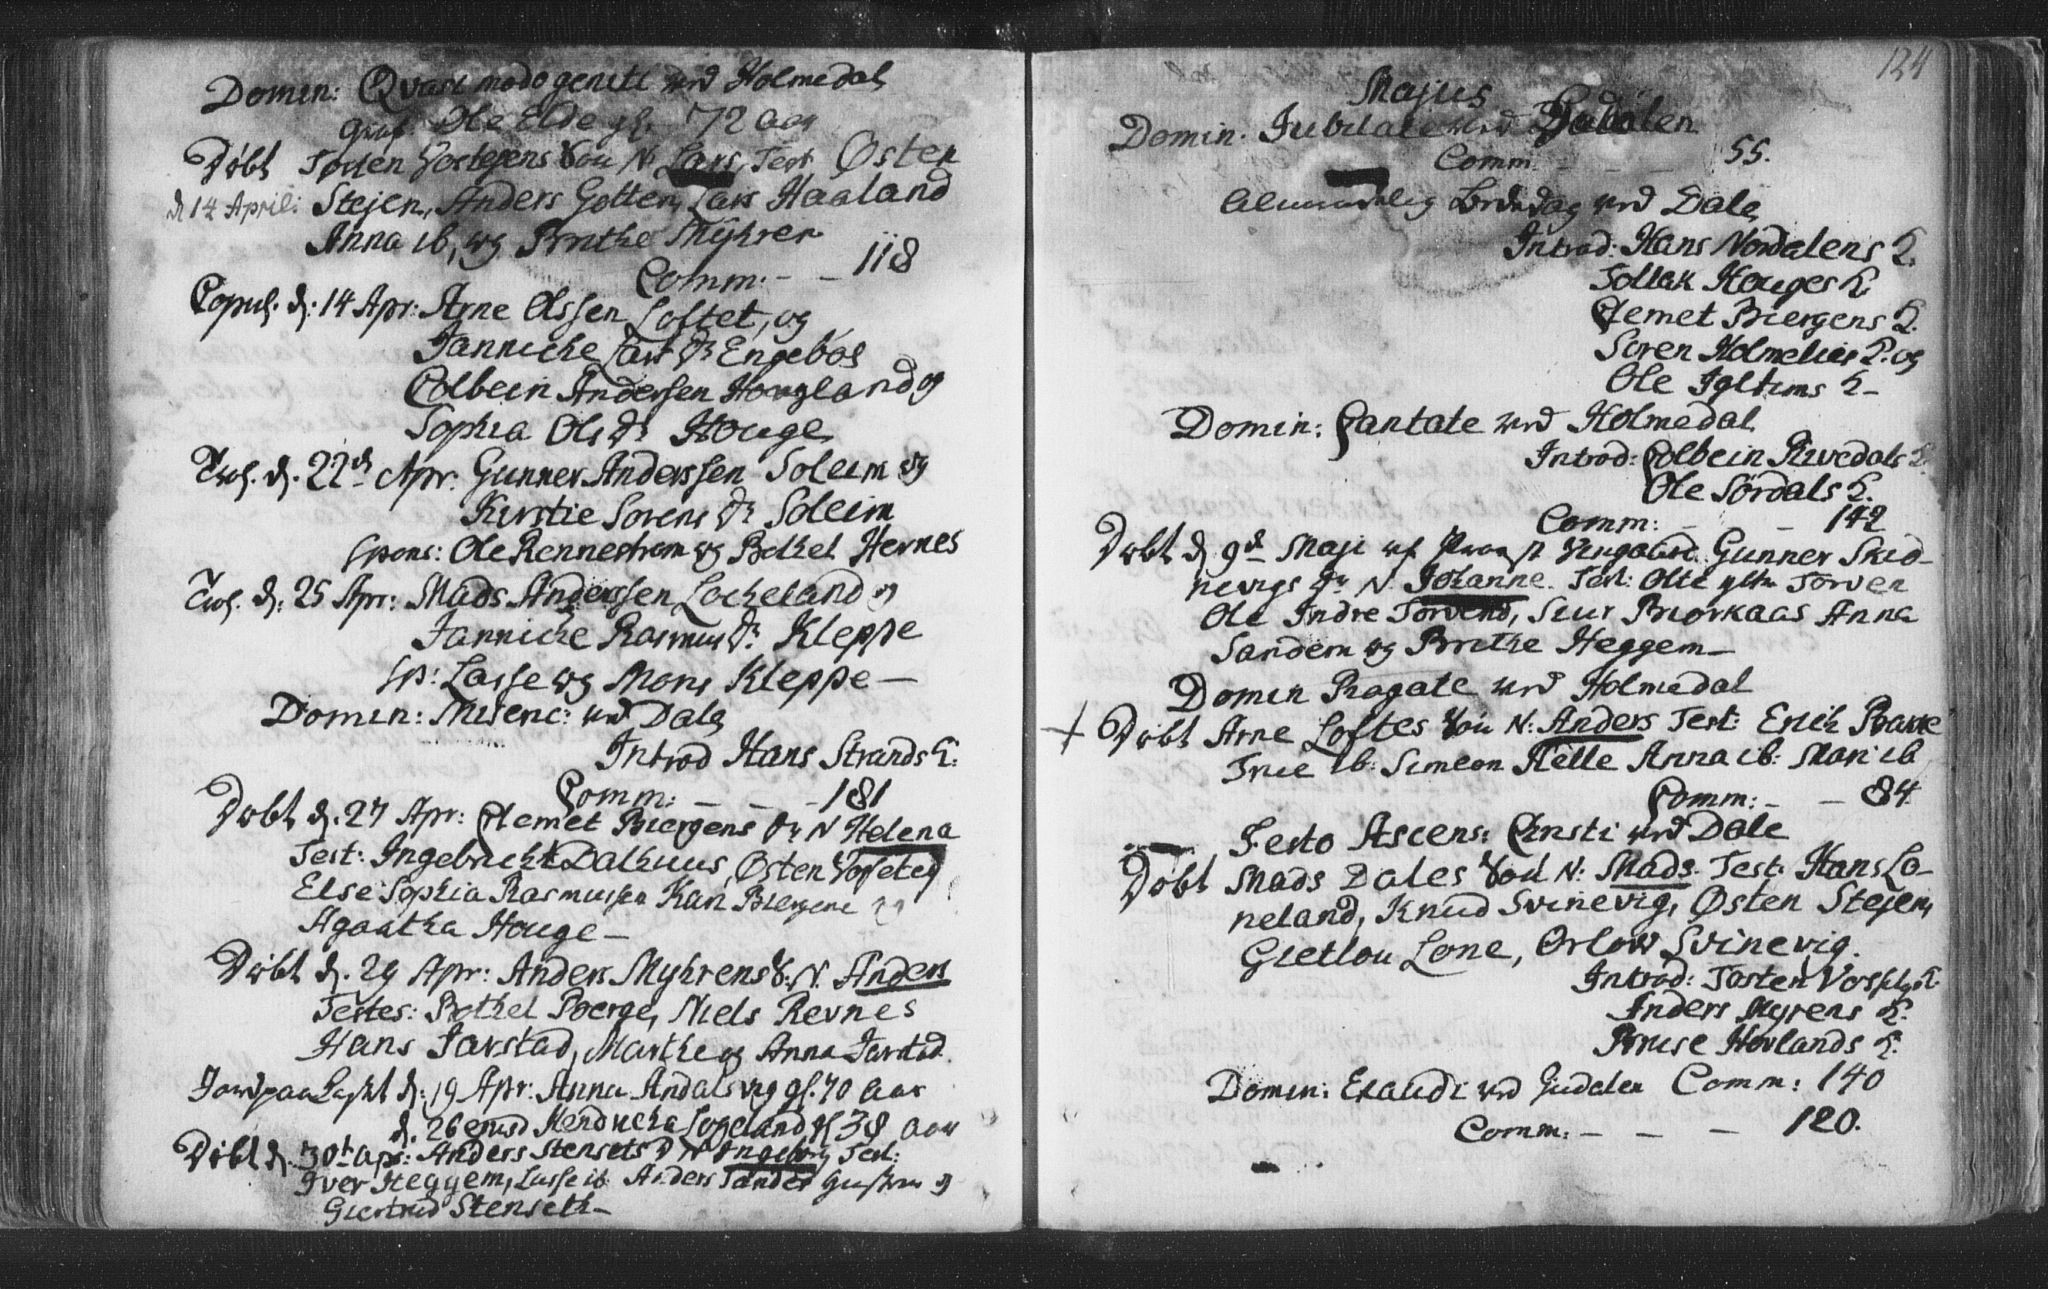 Domin: Qvasi modo geniti ved Holmedal
Graf. Ole Elde gl. 72 aar
Døbt Torsten Vossetejens Søn N: Lars, Test Østen
d 14 April: Stejen, Anders Gotten, Lars Haaland
Anna ib, og Brithe Myhren
Comm: - - 118
Copul. d: 14 Apr: Arne Olssen Loftet, og
Janniche Lars Dr Engebøs
Colbein Anderssen Hougland og
Sophia Ols Dr Houge
Trol. d. 22d Apr. Gunner Anderssen Soleim og
Kirstie Sørens Dr Soleim
Spons: Ole Rennestrøm og Bothel Hernes
Trol. d: 25 Apr: Mads Anderssen Locheland og
Janniche Rasmus Dr Kleppe
Sp: Lasse og Mons Kleppe —
Domin: Miseric: ved Dale
Introd Hans Strands K:
Comm: - - - 181
Døbt d. 27 Apr: Clemet Biergens Dr N Helena
Test: Ingebricht Dalhuus, Østen
Else Sophia Rasmussen Kari Biergene
Agaatha Houge —
Døbt d. 29 Apr: Anders Myhrens S. N. Anders
Testes: Bothel Berge, Niels Revnes
Hans Jarstad, Marthe og Anna Jarstad
Jordpaakast d: 19 Apr: Anna Andalsvig gl. 70 aar
d. 26 ejusd Hendricha Logeland gl 38 aar
Døbt d. 30te apr: Anders Stensets D N Ingeborg Test:
Iver Heggem, Lasse ib Anders Tander og
Giertrud Stenseth —
124
Majus
Domin. Jubilate ved Gudalen
Comm - - - 55.
Almindelig Bededag ved Dale
Introd: Hans Nordalens K.
Tollak Houges K.
Clemet Biergens K.
Søren Holmelies K. og
Ole Igltims K -
Domin: Cantate ved Holmedal
Introd: Colbein Rivedals K
Ole Sørdals K.
Comm: - - 142
Døbt d 9d Maji af Provst Gunner Skid-
nevigs Dr N. Johanne Test: Olte Torven
Ole Indre Torvend, Siur Biorkaas Anna
Sandem og Brithe Heggem —
Domin Rogate ved Holmedal
+ Døbt Arne Loftes Søn N: Anders Test: Erich Brakke
Trie ib: Simeon Helle Anna ib: Mari ib
Comm: - - 84
Festo Ascens: Christi ved Dale
Døbt Mads Dales Søn N: Mads. Test: Hans Lo-
neland, Knud Svinevig, Østen Stejen,
Gietlou Lone, Orlow Svinevig.
Introd: Tosten K.
Anders Myrens K.
Bruse Hovlands K.
Domin: Exaudi ved Gudalen Comm: 140
Comm: - - - 120.